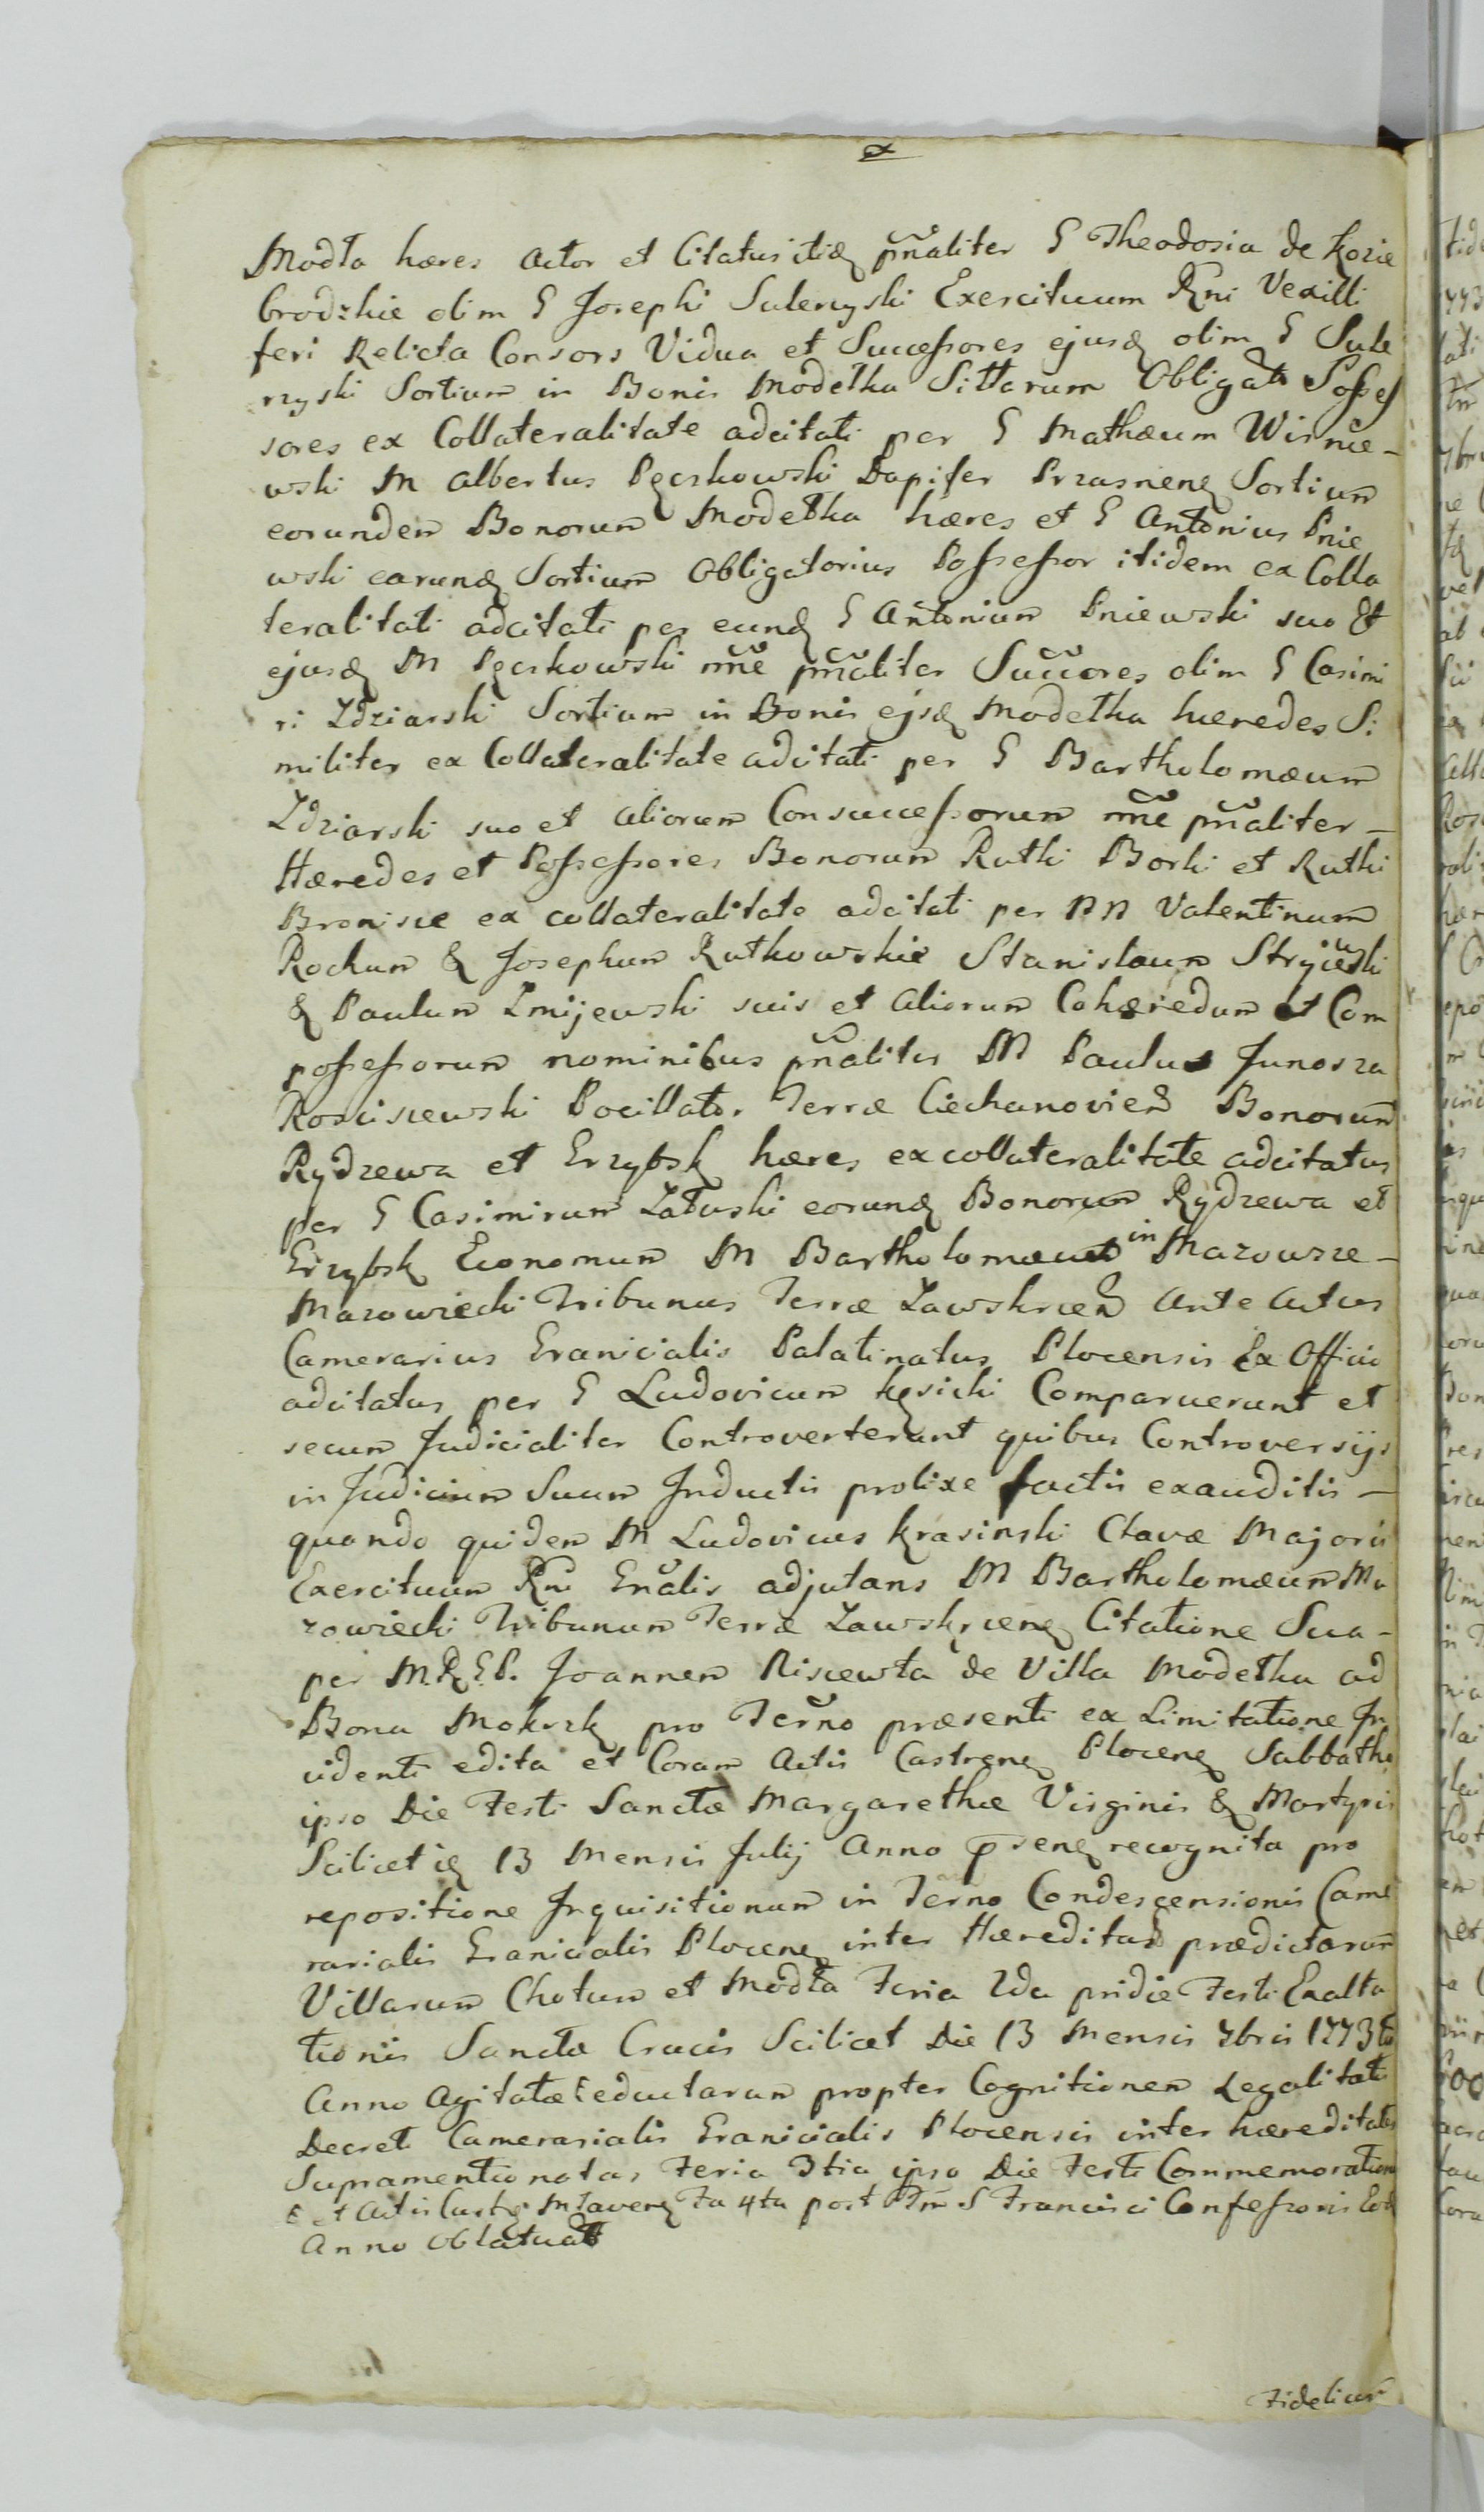 Modła hæres Actor et Citatus itidꝫ pn̄aliter G Theodosia de Kozie
brodzkie olim G Josephi Suleryski Exercituum Rg̃ni Vexilli
feri Relicta Consors Vidua et Successores ejusdꝫ olim G Sule
ryski Sortium in Bonis Modełka Sittarum Obligat Posses
sores ex Collateralitate adcitati per G Mathæum Wisnie-
wski M Albertus Pęczkowski Dapifer Przasnenꝫ Sortium
eorundem Bonorum Modełka hæres et G Antonius Pnie
wski earundꝫ Sortium Obligatorius Possessor itidem ex Colla
teralitati adcitati per eundꝫ G Antonium Pniewski suo Et
ejusdꝫ M Pęczkowski nn̄e pn̄aliter Succores olim G Casimi
ri Zdziarski Sortium in Bonis ejsdꝫ Modełka hæredes Si
militer ex Collateralitate adcitati per G Bartholomæum
Zdziarski suo et aliorum Consuccessorum nn̄e pn̄aliter -
Hæredes et Possessores Bonorum Rutki Borki et Rutki
Bronisze ex collateralitate adcitati per NN Valentinum
Rochum & Josephum Rutkowskie Stanislaum Stryiewski
& Paulum Zmijewski suis et aliorum Cohæredum et Com
possessorum nominibus pn̄aliter M Paulus Junosza
Rosciszewski Pocillator Terræ Ciechanovien Bonorum
Rydzewa et Grzybsk hæres ex collateralitate adcitatus
per G Casimirum Załuski eorundꝫ Bonorum Rydzewa et
Grzybsk Economum M Bartholomæus in Mazowsze -
Mazowiecki Tribunus Terræ Zawskrzen Ante Actus
Camerarius Granicialis Palatinatus Plocensis Ex Officio
adcitatus per G Ludovicum Kęsicki Comparuerunt et
secum Judicialiter Controverterunt quibus Controversijs
in Judicium Suum Inductis prolixe factis exauditis -
quando quidem M Ludovicus Krasinski Clavæ Majoris
Exercituum Rg̃ni Gn̄alis adjutans M Bartholomæum Ma
zowiecki Tribunum Terræ Zawskrzenꝫ Citatione Sua -
per M.R.G.P. Joannem Niscewta de Villa Modełka ad
Bona Mokrzk pro Term̃no præsenti ex Limitatione In
cidenti edita et Coram Actis Castrenꝫ Plocenꝫ Sabbatho
ipso Die Festi Sanctæ Margarethæ Virginis & Martyris
Scilicet 13 Mensis Julij Anno p̄senꝫ recognita pro
repositione Inquisitionum in Term̃no Condescensionis Came
rarialis Granicialis Plocenꝫ inter Hæreditates prædictarum
Villarum Chotum et Modła Feria 2da pridie Festi Exalta
tionis Sanctæ Crucis Scilicet Die 13 Mensis 7bris 1773tio
Anno Agitatæ eductarum propter Cognitionem Legalitatis
Decreti Camerarialis Granicialis Plocensis inter hæreditates
Supramentionatas Feria 3tia ipso Die Festi Commemorationis
et Actis Castr Mlavenꝫ Fa 4ta post Fm S Francisci Confessoris Eod
Anno Oblatuat
Fidelium